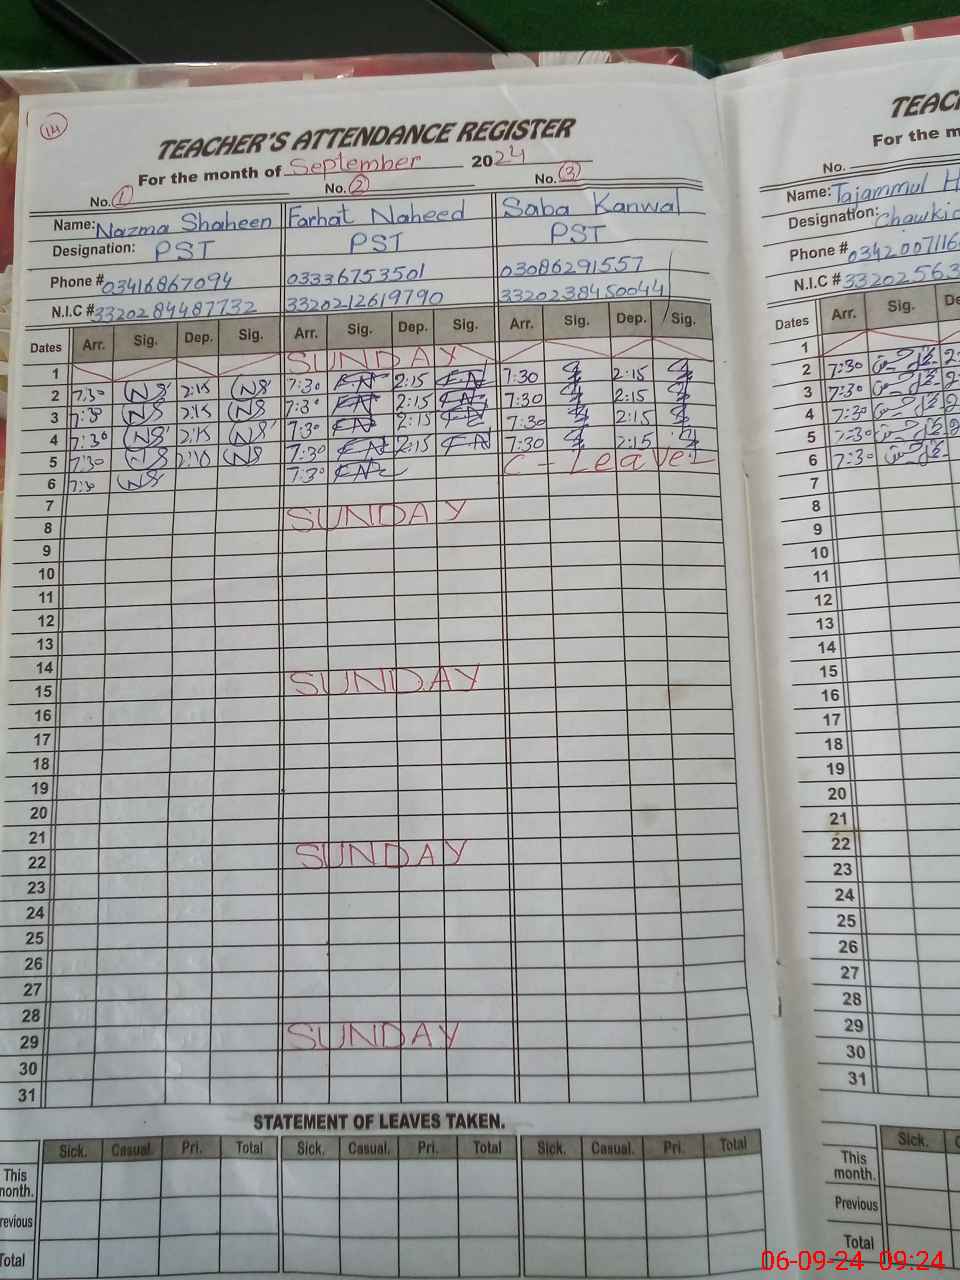 14
TEACHER'S ATTENDANCE REGISTER
For the month of September 2024
No. 1 No. 2 No. 3
Name: Nazma Shaheen Farhat Naheed Saba Kanwal
Designation: PST PST PST
Phone # 03416867094 03336753501 03086291557
N.I.C # 3320284487732 3320212619790 3320238450044
Dates Arr. Sig. Dep. Sig. Arr. Sig. Dep. Sig. Arr. Sig. Dep. Sig.
1 SUNDAY
2 7:30 NS 2:15 NS 7:30 FN 2:15 FN 7:30 2:15
3 7:30 NS 2:15 NS 7:30 FN 2:15 FN 7:30 2:15
4 7:30 NS 2:15 NS 7:30 FN 2:15 FN 7:30 2:15
5 7:30 NS 2:15 NS 7:30 FN 2:15 FN 7:30 2:15
6 7:30 NS 7:30 FN C - Leave
7
8 SUNDAY
9
10
11
12
13
14
15 SUNDAY
16
17
18
19
20
21
22 SUNDAY
23
24
25
26
27
28
29 SUNDAY
30
31
STATEMENT OF LEAVES TAKEN.
Sick. Casual. Pri. Total Sick. Casual. Pri. Total Sick. Casual. Pri. Total
This
month.
Previous
Total
TEAC
For the m
No.
Name: Tajammul H
Designation: Chawkid
Phone # 0342007116
N.I.C # 33202563
Dates Arr. Sig. De
1
2 7:30
3 7:30
4 7:30
5 7:30
6 7:30
7
8
9
10
11
12
13
14
15
16
17
18
19
20
21
22
23
24
25
26
27
28
29
30
31
Sick. C
This
month.
Previous
Total
06-09-24 09:24